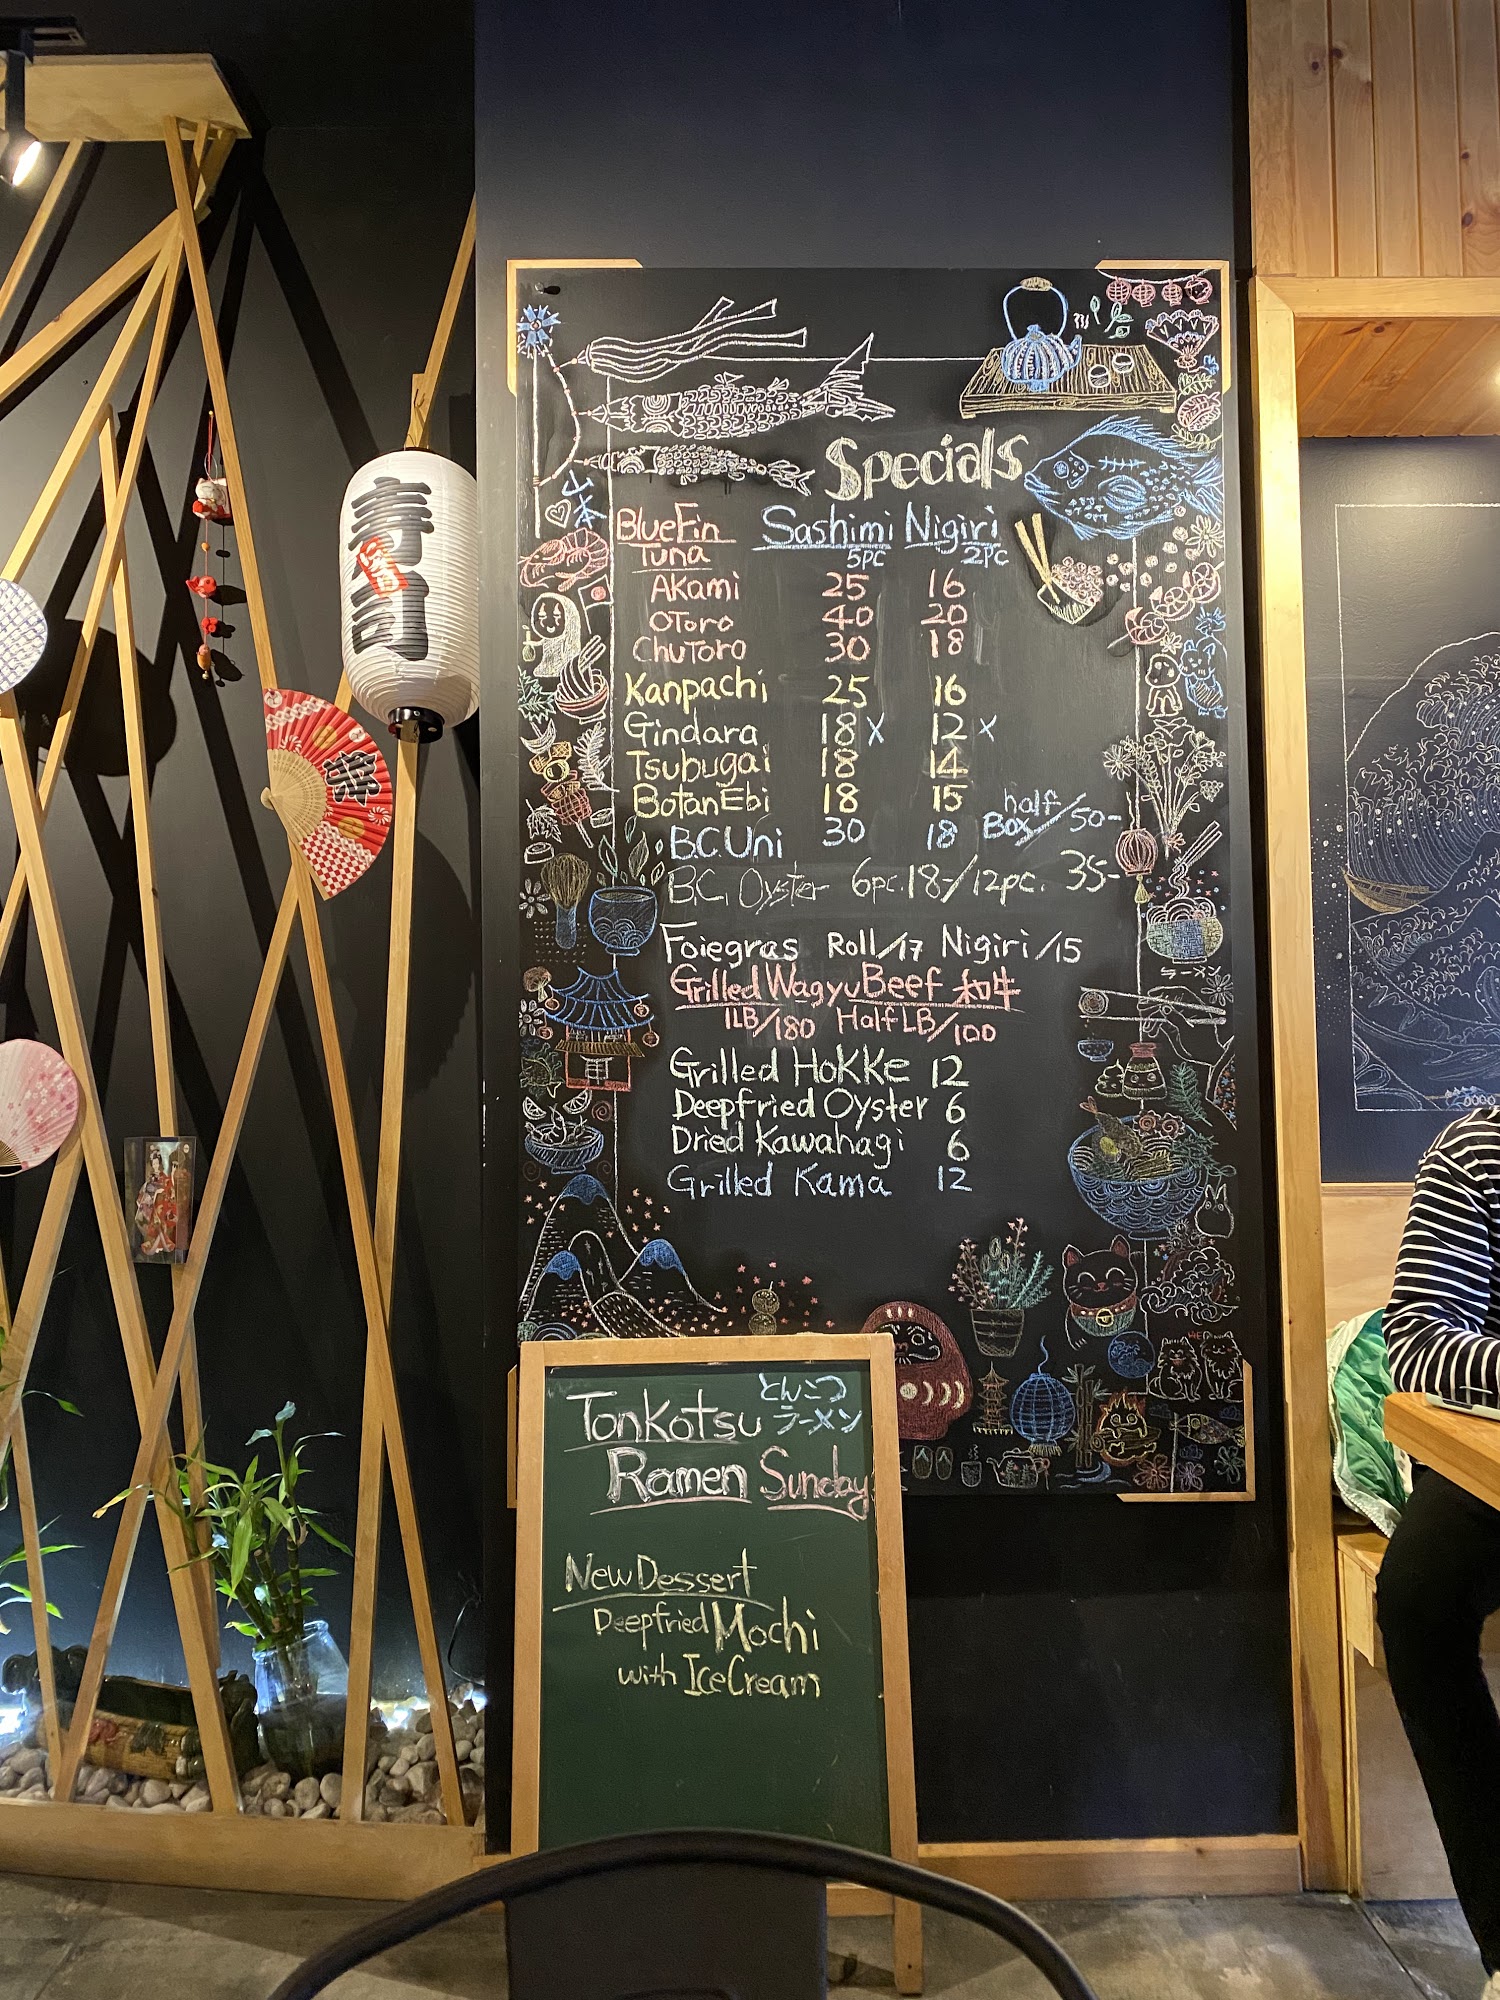 寿司
Specials
BlueFin Sashimi Nigiri
Tuna 5pc 2pc
Akami 25 16
OToro 40 20
ChuToro 30 18
Kanpachi 25 16
Gindara 18 x 12 x
Tsubugai 18 14
BotanEbi 18 15
B.C.Uni 30 18 half Box/50-
B.C. Oyster 6pc.18-/12pc. 35-
Foiegras Roll/17 Nigiri/15
Grilled Wagyu Beef 和牛
1LB/180 Half LB/100
Grilled Hokke 12
Deepfried Oyster 6
Dried Kawahagi 6
Grilled Kama 12
ラーメン
Tonkotsu とんこつ
ラーメン
Ramen Sunday
New Dessert
Deepfried Mochi
with IceCream